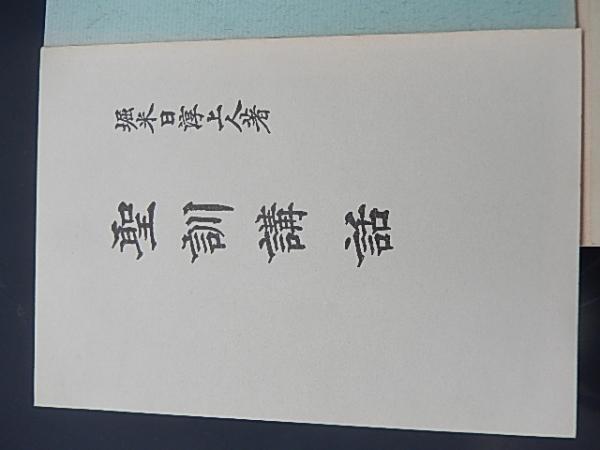 堀米日淳上人著
聖訓講話